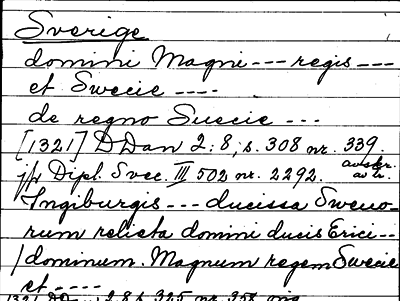 Sverige
domini Magni --- regis ---
et Swecie ----
de regno Suecie ---
[1321] DDan 2:8, s. 308 nr. 339.
avskr.
jfr Dipl. Svec. III 502 nr. 2292. av tr.
Ingiburgis --- ducissa Sweno-
rum relicta domini ducis Erici --
/dominum. Magnum regem Swecie
et ----
1321 DD 2:8 s. 325 nr. 358 orig.